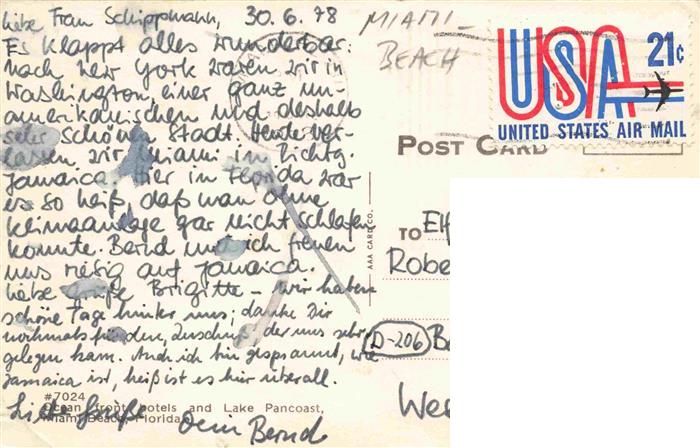 liebe Frau Schippmann, 30.6.78
Es klappt alles wunderbar:
nach New York waren wir in
Washington, einer ganz un-
amerikanischen und deshalb
sehr schönen Stadt. Heute ver-
lassen wir Miami in Richtg.
Jamaica. Hier in Florida war
es so heiß, daß man ohne
Klimaanlage gar nicht schlafen
konnte. Bernd und ich freuen
uns riesig auf Jamaica.
liebe Grüße Brigitte – wir haben
schöne Tage hinter uns; danke Dir
nochmals für den Zuschuß, der uns sehr
gelegen kam. Auch ich bin gespannt, wie
Jamaica ist, heiß ist es hier überall.
Liebe Grüße Dein Bernd
#7024
Ocean front hotels and Lake Pancoast,
Miami Beach, Florida
MIAMI-
BEACH
USA 21¢
UNITED STATES AIR MAIL
POST CARD
AAA CARD CO.
TO Elf
Robe
D-206 Ba
We